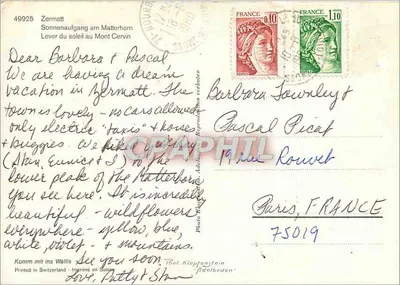 49925 Zermatt
Sonnenaufgang am Matterhorn
Lever du soleil au Mont Cervin
FRANCE
0,10
FRANCE
1,10
Dear Barbara & Pascal
We are having a dream
vacation in Zermatt. The
town is lovely - no cars allowed
only electric "taxis" & horses
& buggies. We hiked
(Stan, Eunice & I) to the
lower place of the Matterhorn
you see here. It is incredibly
beautiful - wildflowers
everywhere - yellow, blue,
white, violet - & mountains.
See you soon,
Love, Patty & Stan
Barbara Townley &
Pascal Picat
19 rue Rouvet
Paris, FRANCE
75019
CPAPHIL
Komm mit ins Wallis
Printed in Switzerland - Imprimé en Suisse
Phot Klopfenstein
Adelboden